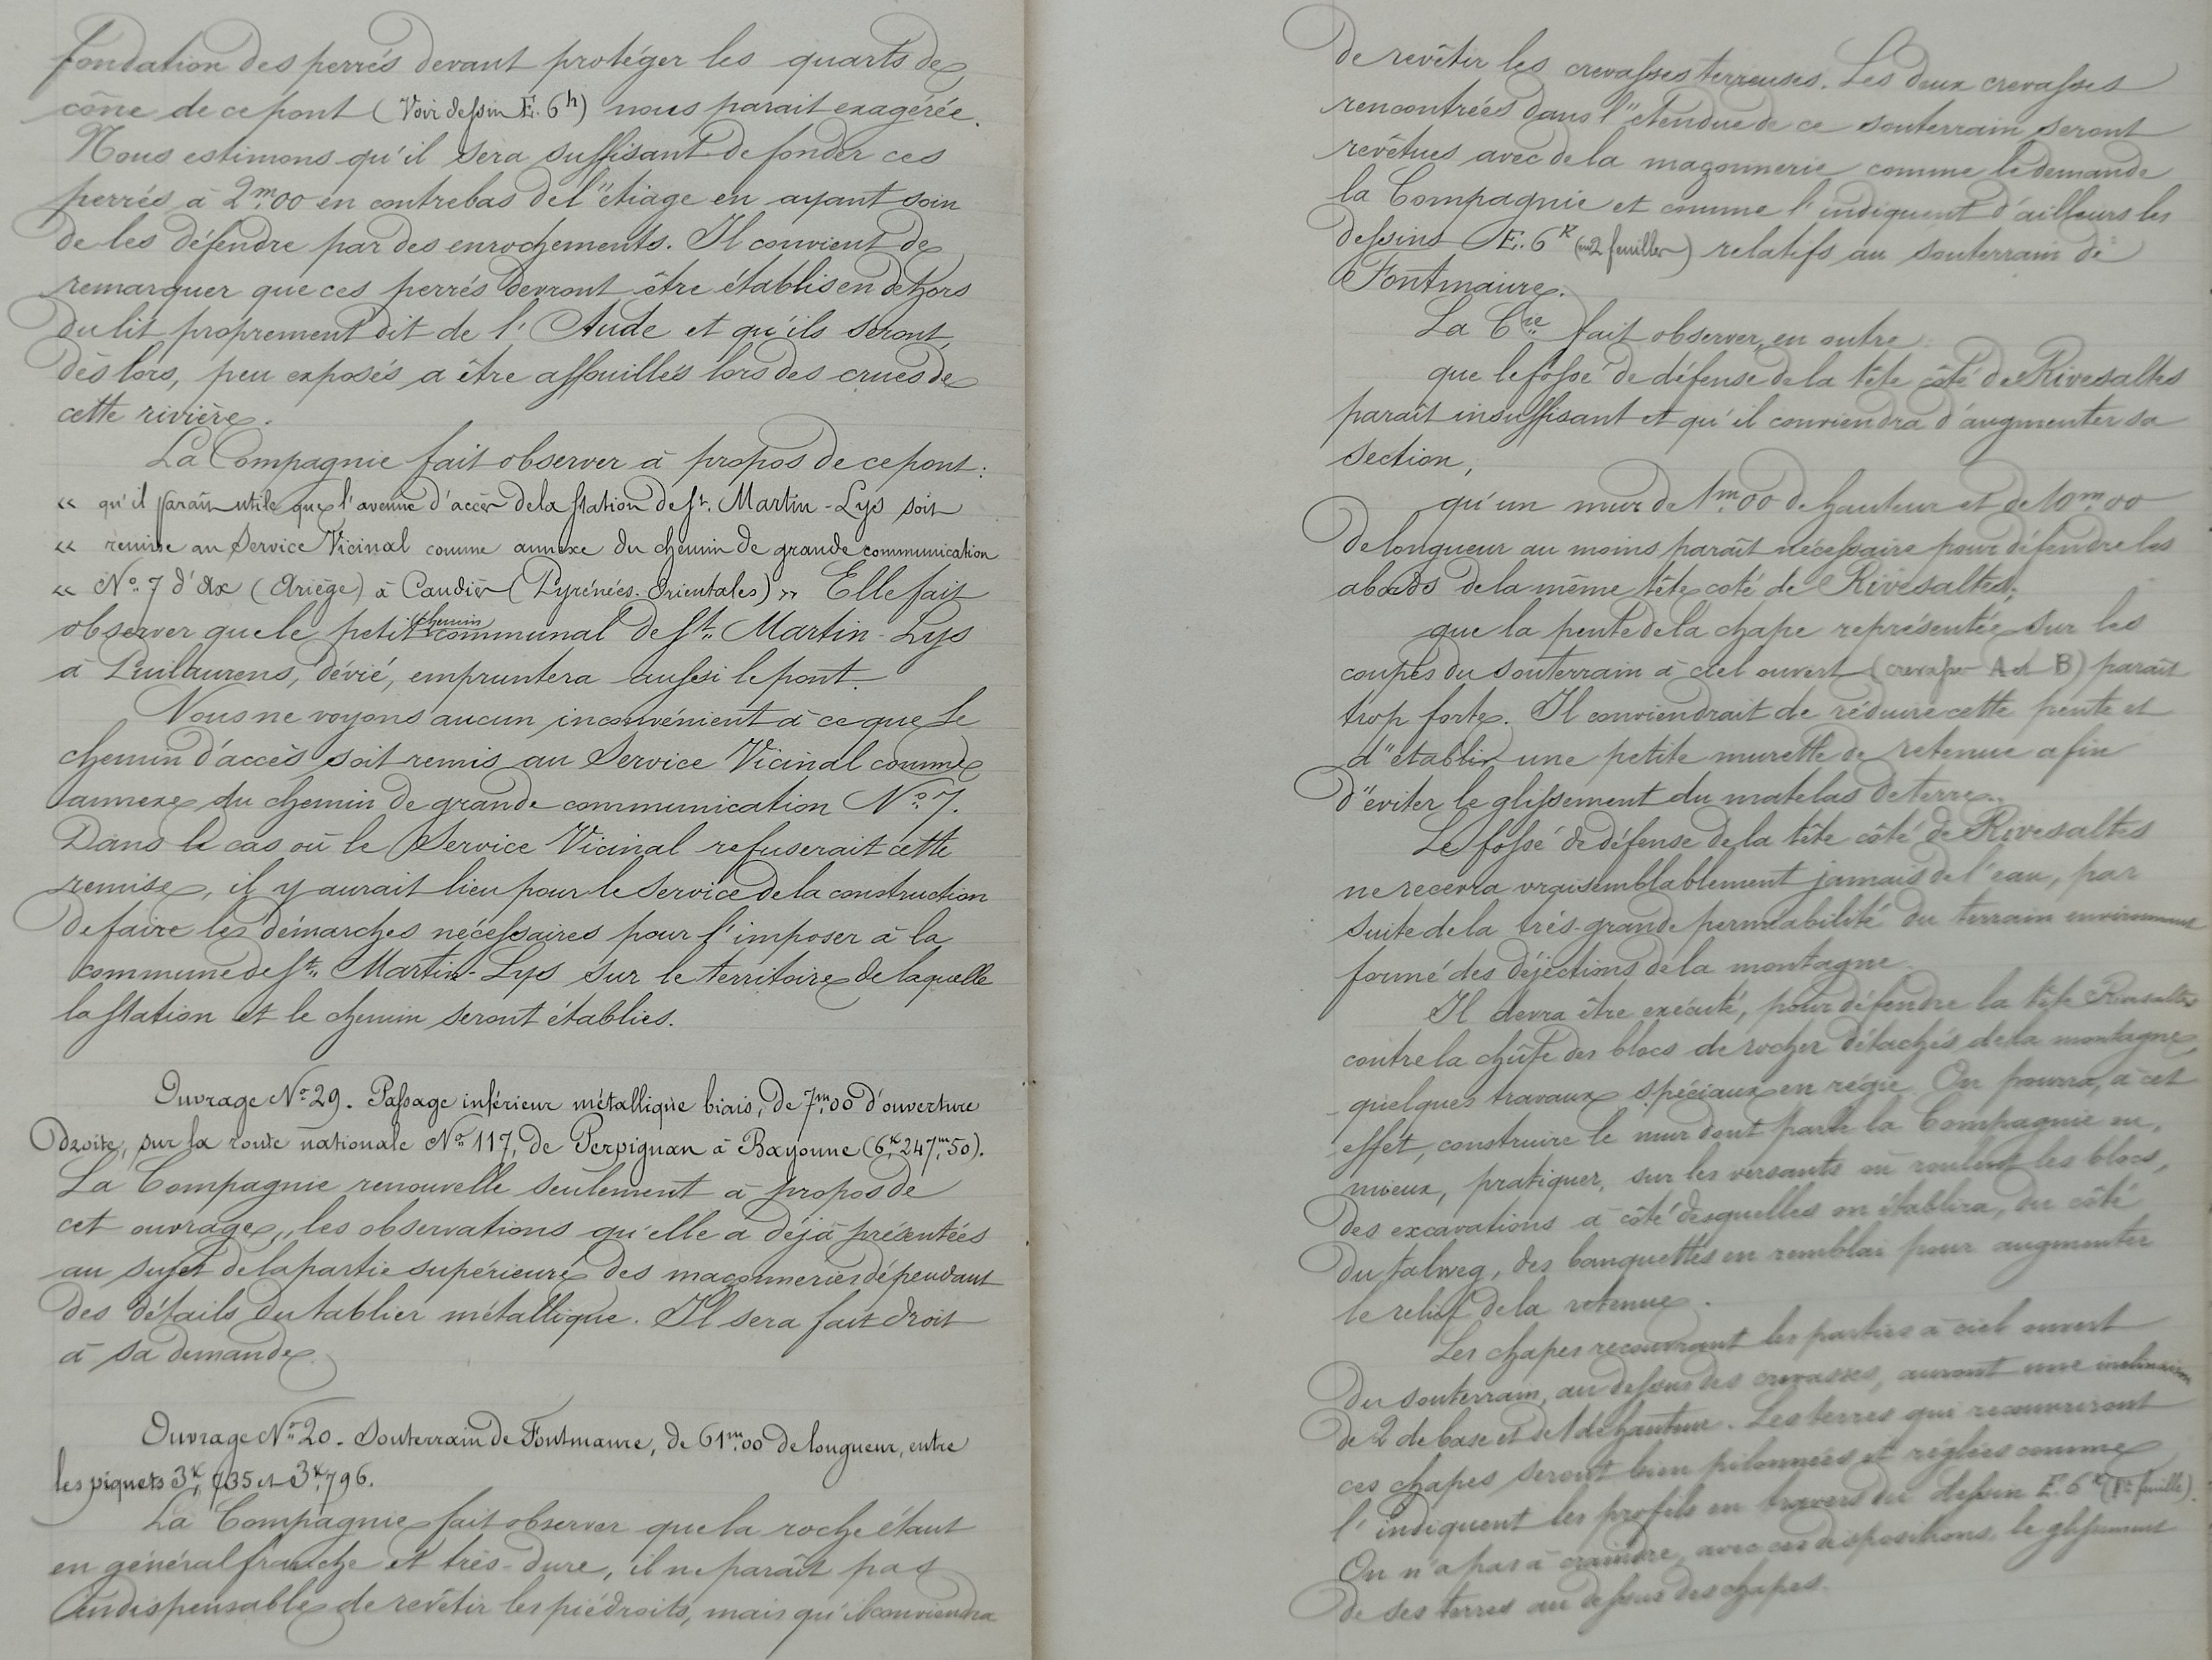 fondation des perrés devant protéger les quarts de
cône de ce pont (Voir dessin E. 6h) nous parait exagérée.
Nous estimons qu'il sera suffisant de fonder ces
perrés à 2m.00 en contrebas de l'étiage en ayant soin
de les défendre par des enrochements. Il convient de
remarquer que ces perrés devront être établis en dehors
du lit proprement dit de l'Aude et qu'ils seront,
dès lors, peu exposés a être affouillés lors des crues de
cette rivière.
La Compagnie fait observer à propos de ce pont :
« qu'il parait utile que l'avenue d'accès de la station de St. Martin-Lys soit
« remise au Service Vicinal comme annexe du chemin de grande communication
« No. 7 d'Ax (Ariège) à Caudiès (Pyrénées-Orientales) » Elle fait
observer que le petit chemin communal de St. Martin-Lys
à Puilaurens, dévié, empruntera aussi le pont.
Nous ne voyons aucun inconvénient à ce que le
chemin d'accès soit remis au Service Vicinal comme
annexe du chemin de grande communication No. 7.
Dans le cas où le Service Vicinal refuserait cette
remise, il y aurait lieu pour le service de la construction
de faire les démarches nécessaires pour l'imposer à la
commune de St. Martin-Lys sur le territoire de laquelle
la station et le chemin seront établies.
Ouvrage No. 29. Passage inférieur métallique biais, de 7m.00 d'ouverture
droite, sur la route nationale No. 117, de Perpignan à Bayonne (6k.247m.50).
La Compagnie renouvelle seulement à propos de
cet ouvrage, les observations qu'elle a déjà présentées
au sujet de la partie supérieure des maçonneries dépendant
des détails du tablier métallique. Il sera fait droit
à sa demande.
Ouvrage No. 20. Souterrain de Fontmaure, de 61m.00 de longueur, entre
les piquets 3k.735 et 3k.796.
La Compagnie fait observer que la roche étant
en général franche et très-dure, il ne paraît pas
indispensable de revêtir les piédroits, mais qu'il conviendra
de revêtir les crevasses terreuses. Les deux crevasses
rencontrées dans l'étendue de ce souterrain seront
revêtues avec de la maçonnerie comme le demande
la Compagnie et comme l'indiquent d'ailleurs les
dessins E. 6k (en 2 feuilles) relatifs au souterrain de
Fontmaure.
La Cie fait observer, en outre
que le fossé de défense de la tête côté de Rivesaltes
paraît insuffisant et qu'il conviendra d'augmenter sa
section,
qu'un mur de 1m.00 de hauteur et de 10m.00
de longueur au moins paraît nécessaire pour défendre les
abords de la même tête coté de Rivesaltes,
que la pente de la chape représentée sur les
coupes du souterrain à ciel ouvert (crevasses A et B) paraît
trop forte. Il conviendrait de réduire cette pente et
d'établir une petite murette de retenue afin
d'éviter le glissement du matelas de terre.
Le fossé de défense de la tête côté de Rivesaltes
ne recevra vraisemblablement jamais de l'eau, par
suite de la très-grande perméabilité du terrain environnant
formé des déjections de la montagne.
Il devra être exécuté, pour défendre la tête Rivesaltes
contre la chûte des blocs de rocher détachés de la montagne,
quelques travaux spéciaux en régie. On pourra, à cet
effet, construire le mur dont parle la Compagnie ou,
mieux, pratiquer, sur les versants où roulent les blocs,
des excavations à côté desquelles on établira, du côté
du talweg, des banquettes en remblai pour augmenter
le relief de la retenue.
Les chapes recouvrant les parties à ciel ouvert
du souterrain, au dessus des crevasses, auront une inclinaison
de 2 de base et de 1 de hauteur. Les terres qui recouvriront
ces chapes seront bien pilonnées et réglées comme
l'indiquent les profils en travers du dessin E. 6k (1re feuille).
On n'a pas à craindre, avec ces dispositions, le glissement
de ses terres au dessus des chapes.